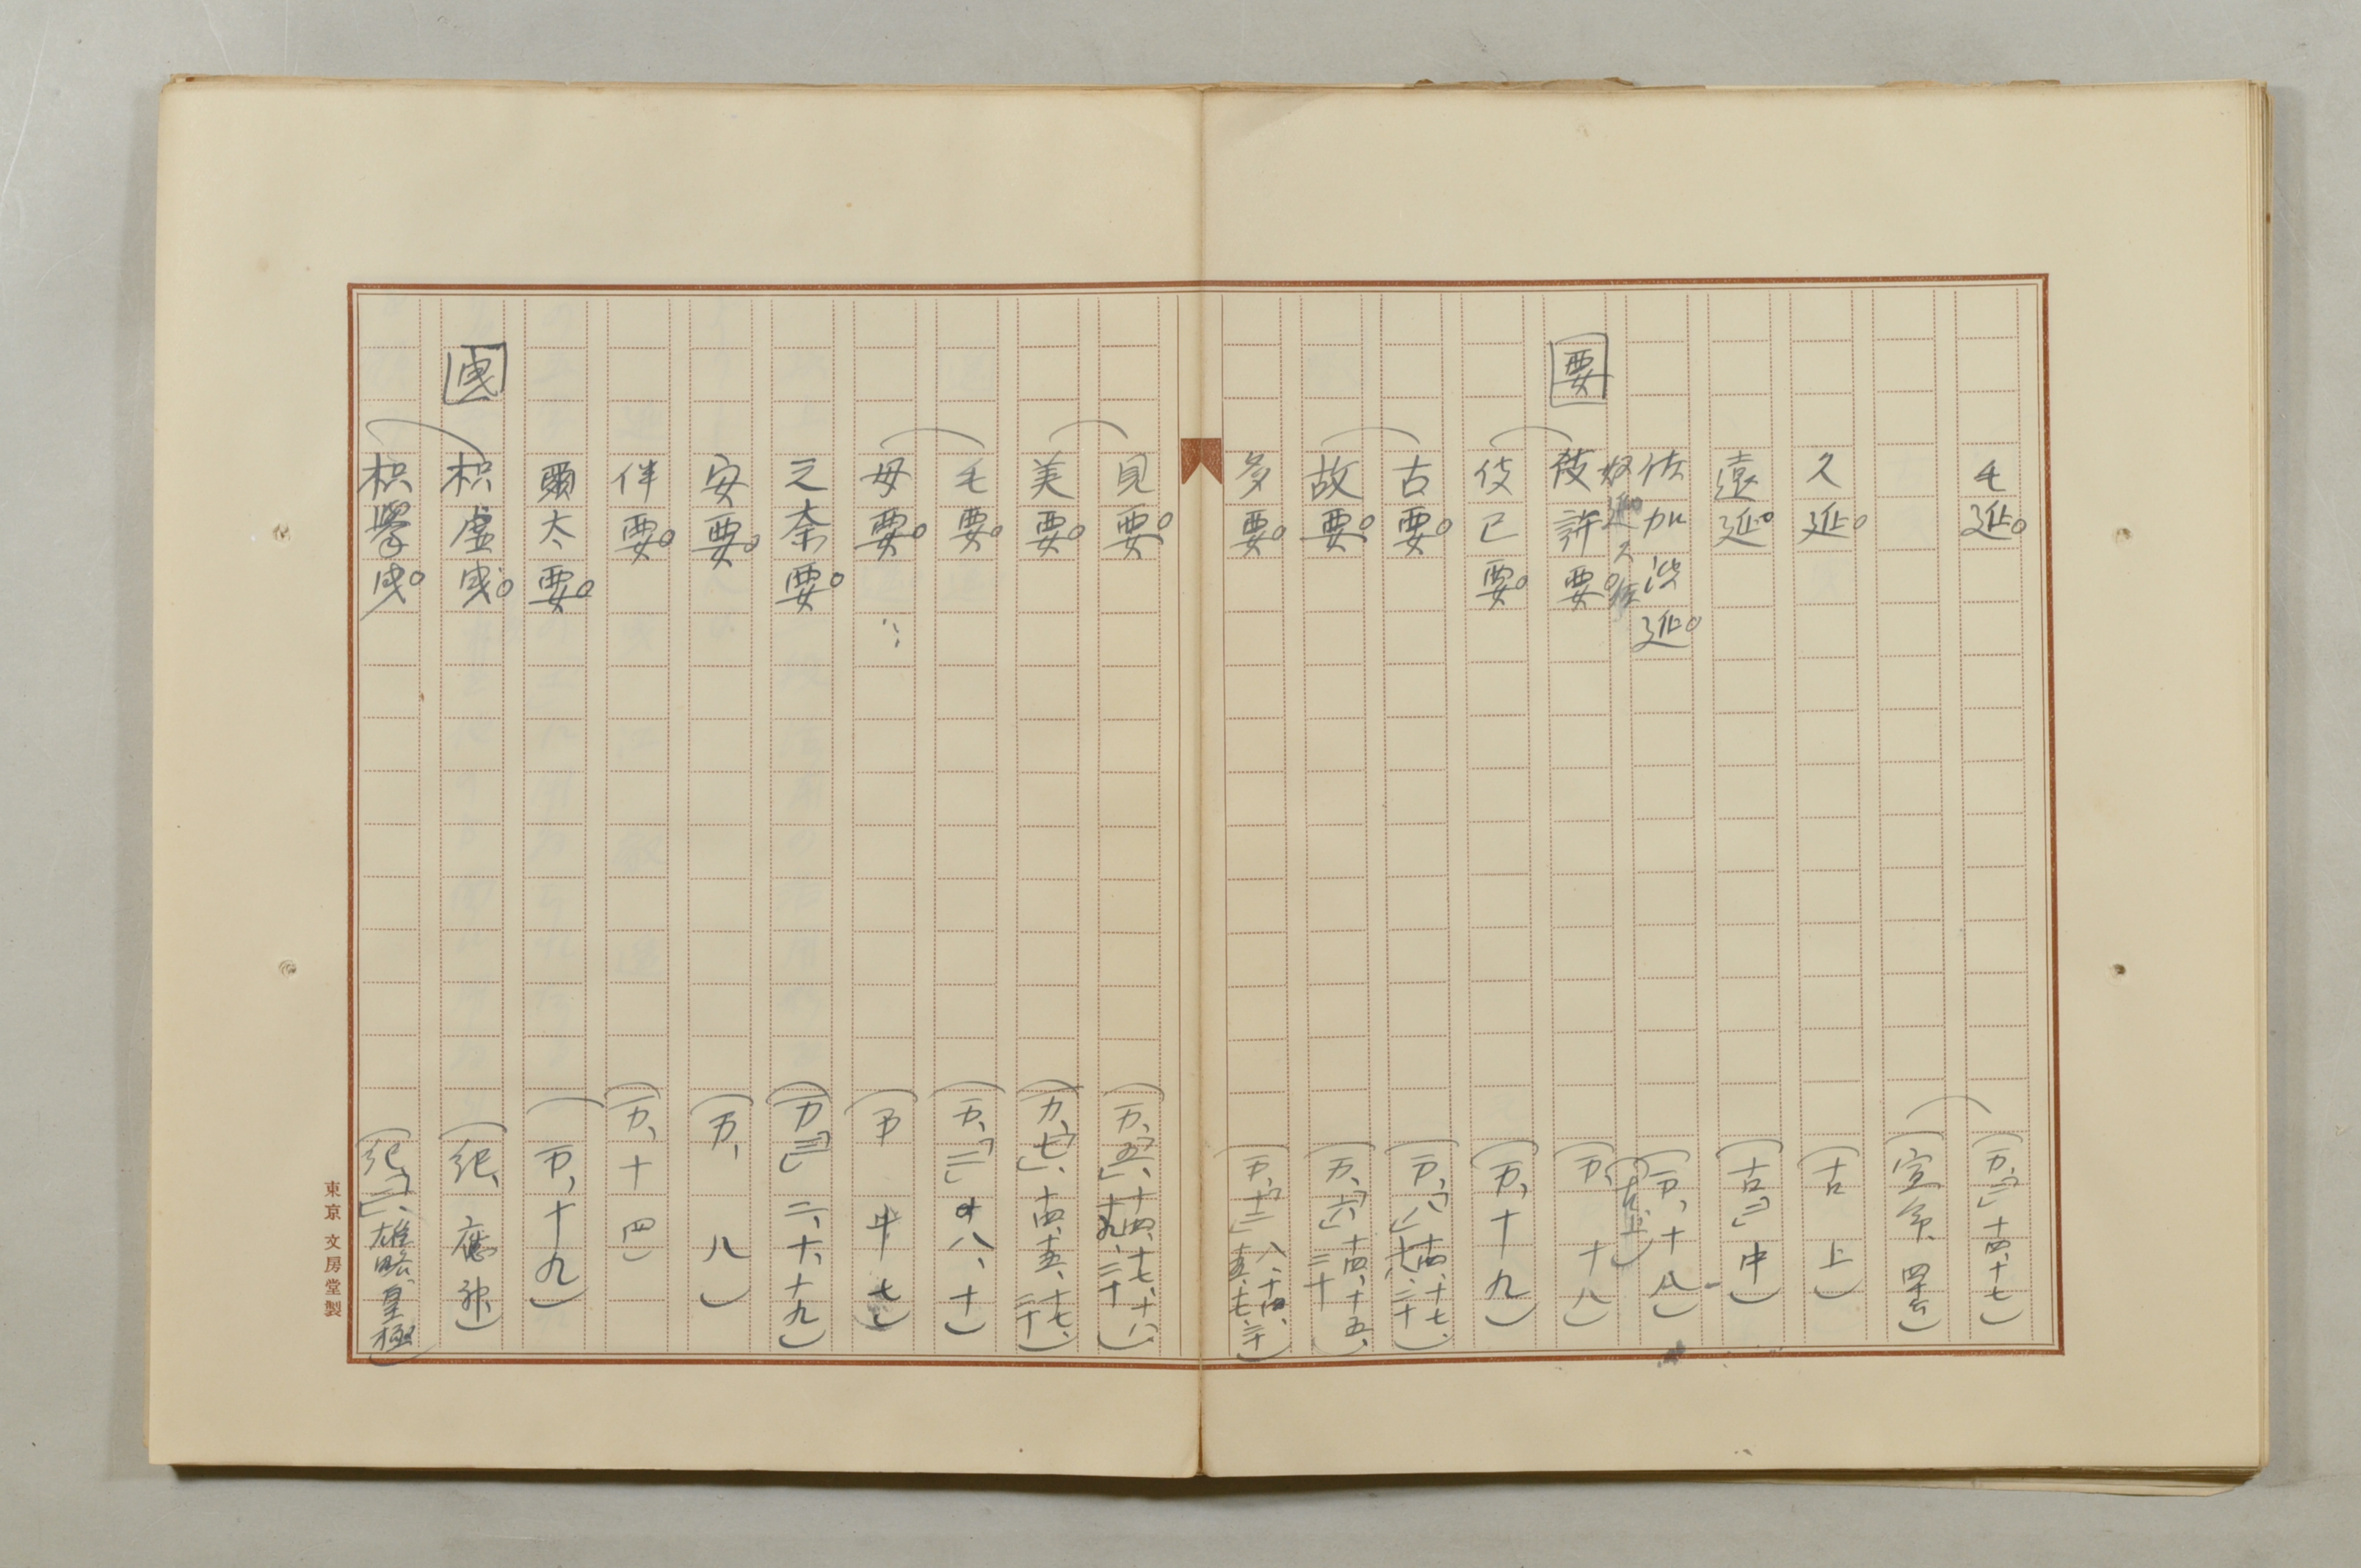 毛延。 (万、「二」十四、十七)
(宣命、四十六)
久延。 (古 上)
遠延。 (古「」中)
佐加延。 (万、十八)
奴延久佐 (古上)
要
伎許要。 (万、十八)
伎已要。 (万、十九)
古要。 (万、「八」十四、十七、十八、二十)
故要。 (万、「六」十四、十五、二十)
多要。 (万、「十二」八、十四、十五、十七、二十)
見要。 (万、「五」、十四、十七、十八、十九、二十)
美要。 (万、「七」、十四、十五、十七、二十)
毛要。 (万、「三」十八、十)
母要。 (万 十七)
之奈要。 (万、「三」二、十、十九)
安要。 (万、八)
伴要。 (万、十四)
爾太要。 (万、十九)
曳
枳虚曳。 (紀、應神)
枳擧曳。 (紀、「二」、雄略、皇極)
東京文房堂製